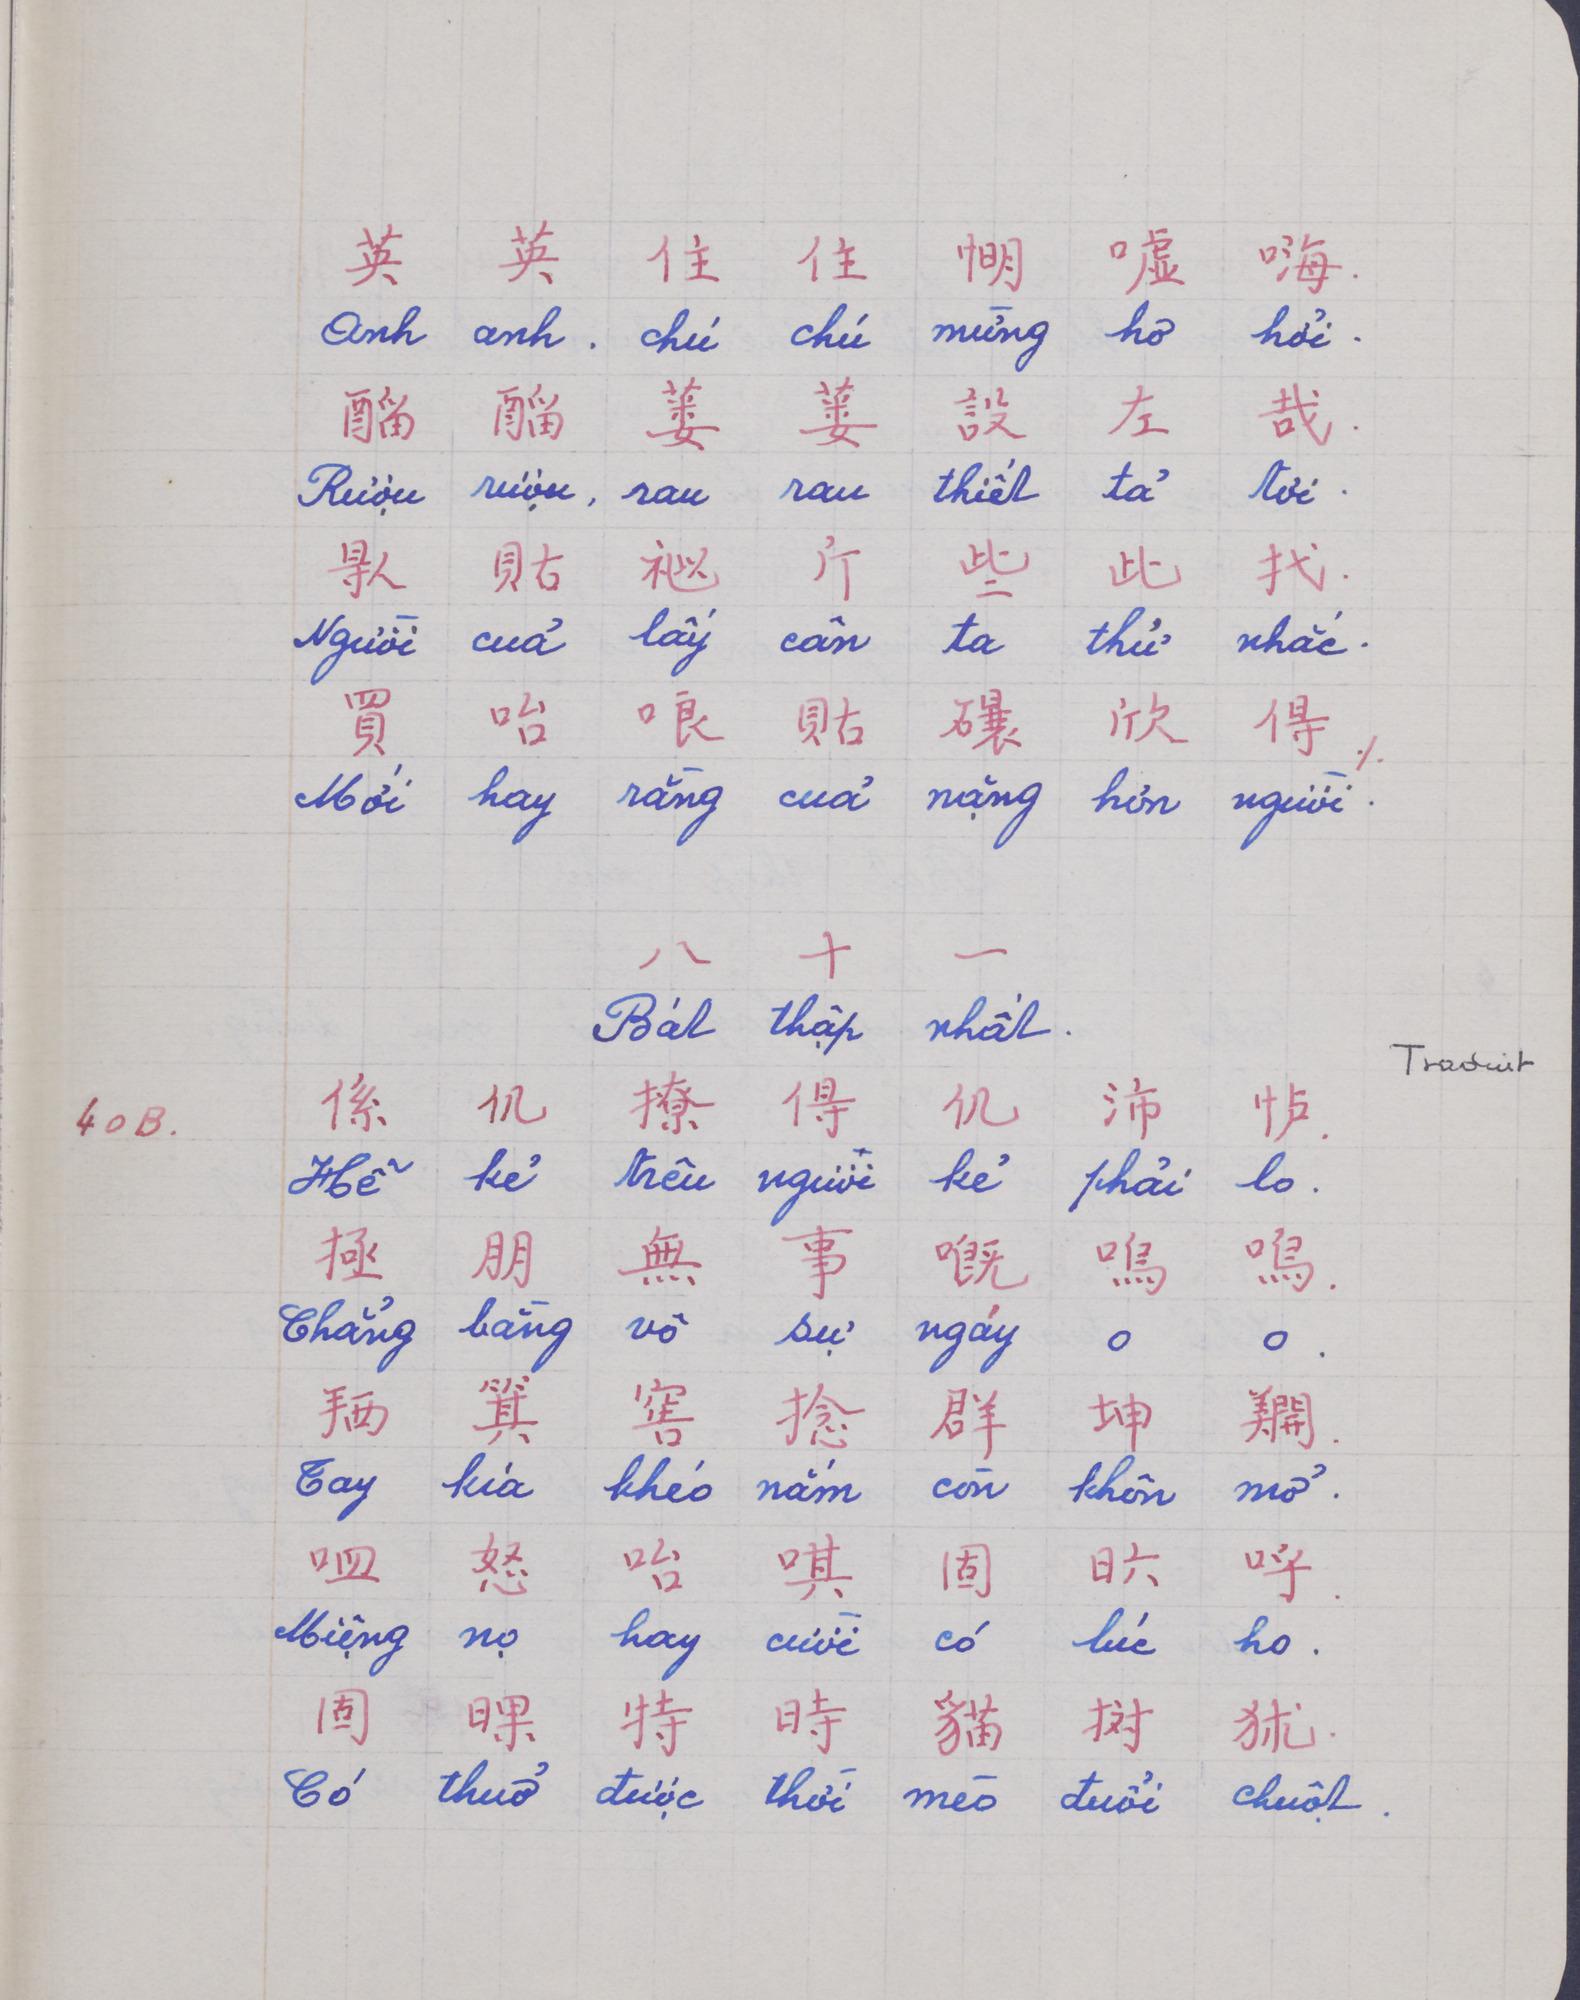 英 英 住 住 𢜏 噓 嗨.
Anh anh. chú chú mừng hơ hỏi.
𨢇 𨢇 蔞 蔞 設 左 哉.
Rượu rượu, rau rau thiết tả tơi.
貼 斤 些 此 找.
Người của lấy cân ta thử nhắc.
買 咍 哴 貼 𥗾 欣 得 ./.
Mới hay rằng của nặng hơn người.
八 十 一
Bát thập nhất.
Traduit
40B.
係 仉 撩 得 仉 沛 怗.
Hễ kẻ trêu người kẻ phải lo.
極 朋 無 事 嘅 嗚 嗚.
Chẳng bằng vô sự ngáy o o.
𢬣 箕 窖 捻 群 坤 𢲫.
Tay kia khéo nắm còn khôn mở.
𠰘 怒 咍 唭 固 𣅶 呼.
Miệng nọ hay cười có lúc ho.
固 𣇫 特 時 貓 𢭮 狖.
Có thuở được thời mèo đuổi chuột.